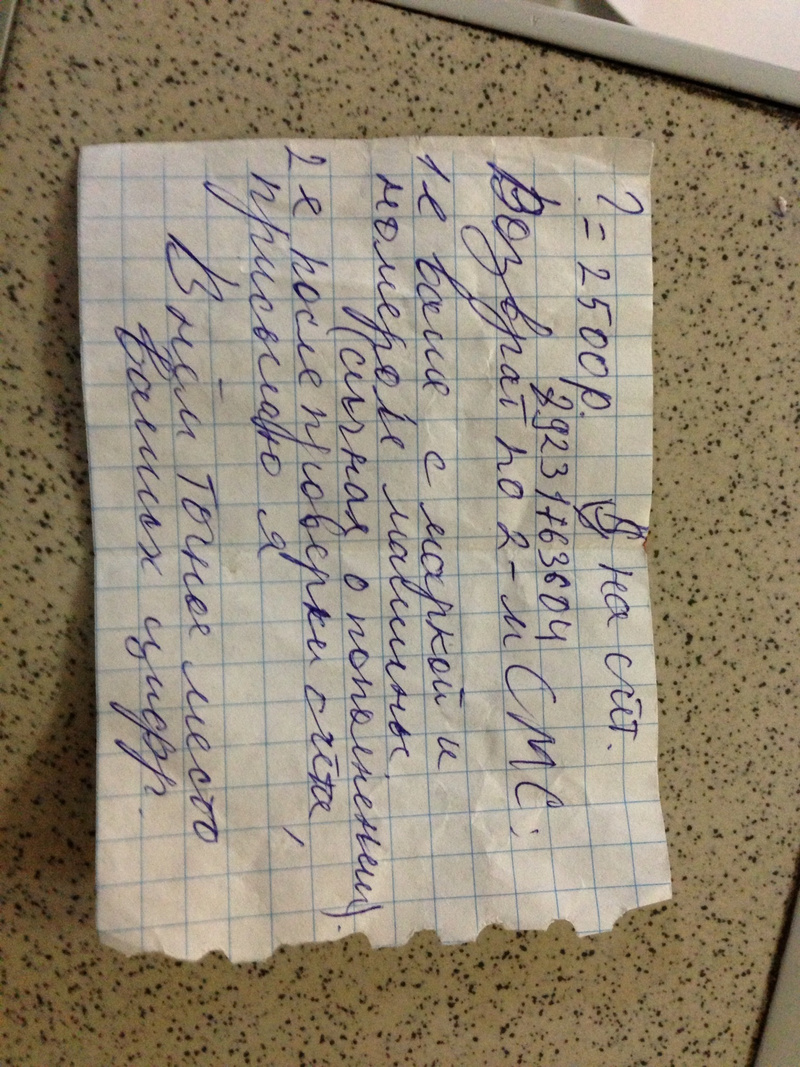 ? = 2500р. на сйт.
29231763604
Возврат по 2-м СМС:
1е ваше с маркой и
номером машины
(сигнал о пополнении).
2е после проверки счёта,
присылаю я
В нём точное место
ваших цифр.